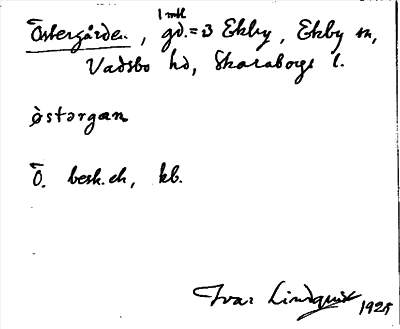 Östergården, 1 mtl gd. = 3 Ekby, Ekby sn,
Vadsbo hd, Skaraborgs l.
östərgan
Ö. besk. ch, kb.
Ivar Lindquist 1925